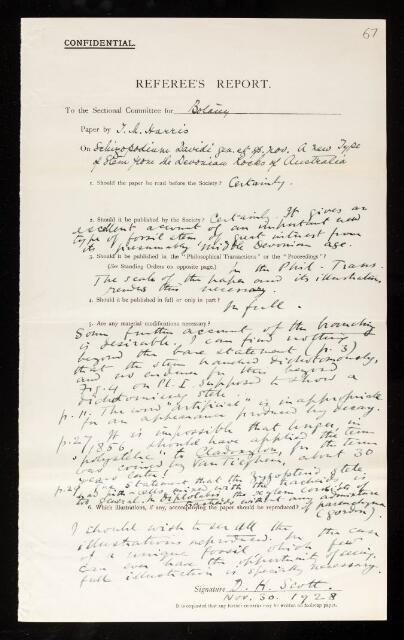 67
CONFIDENTIAL.
REFEREE'S REPORT.
To the Sectional Committee for Botany
Paper by T. M. Harris
On Schizopodium Davidi gen. et sp. nov. A new Type
of Stem from the Devonian Rocks of Australia
1. Should the paper be read before the Society? Certainly.
2. Should it be published by the Society? Certainly. It gives an
excellent account of an important new
type of fossil stem of great interest from
its presumably Middle Devonian age.
3. Should it be published in the "Philosophical Transactions" or the "Proceedings"?
(See Standing Orders on opposite page.) In the Phil. Trans.
The scale of the paper and its illustrations
renders this necessary.
4. Should it be published in full or only in part?
In full.
5. Are any material modifications necessary?
Some further account of the branching
is desirable. I can find nothing
beyond the bare statement (p. 3)
that the stem branched dichotomously,
and no evidence for this beyond
Fig. 4 on Pl. I. supposed to show a
dichotomising stele
p. 11. The word "artificial" is inappropriate
for an appearance produced by decay.
p. 27. It is impossible that Unger, in
1856, should have applied the term
"polystelic" to Cladoxylon, for the term
was coined by Van Tieghem, about 30
years later.
p. 29. The statement that the Zygopterid stele
had pith
6. Which illustrations, if any, accompanying the paper should be reproduced?
of parenchyma
(Gordon).
I should wish to see all the
illustrations reproduced. In the case
of a unique fossil which few
can ever have the opportunity of seeing,
full illustration is specially necessary.
Signature D. H. Scott.
Nov. 30. 1928
It is requested that any further remarks may be written on foolscap paper.